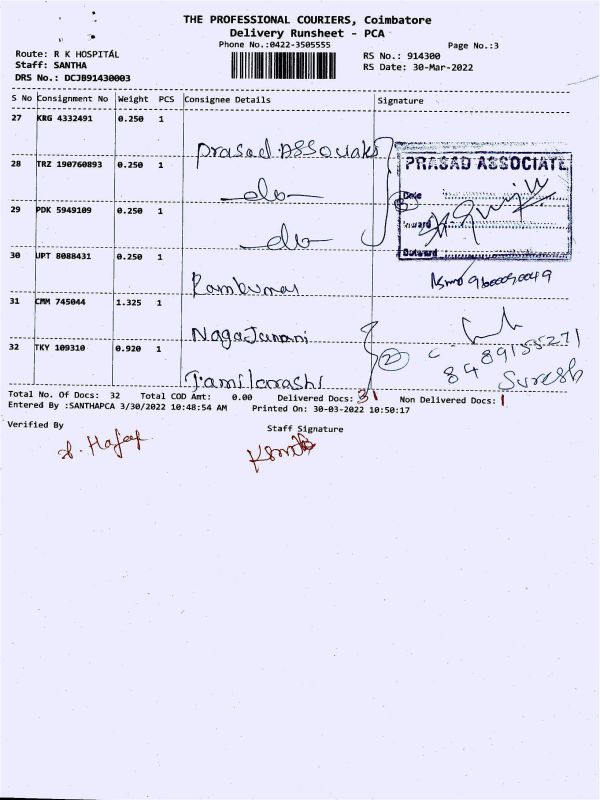 THE PROFESSIONAL COURIERS, Coimbatore
Delivery Runsheet - PCA
Phone No.:0422-3505555
Page No.:3
Route: R K HOSPITAL
RS No.: 914300
Staff: SANTHA
RS Date: 30-Mar-2022
DRS No.: DCJB91430003
S No Consignment No Weight PCS Consignee Details Signature
27 KRG 4332491 0.250 1
Prasad Associates
28 TRZ 190760893 0.250 1
-do-
29 PDK 5949109 0.250 1
-do-
PRASAD ASSOCIATE
Date
Inward
Outward
30 UPT 8088431 0.250 1
Ramkumar
9600050049
31 CMM 745044 1.325 1
Nagajanani
32 TKY 109310 0.920 1
2
Suresh
Tamilarashi
Total No. Of Docs: 32 Total COD Amt: 0.00 Delivered Docs: 31 Non Delivered Docs: 1
Entered By :SANTHAPCA 3/30/2022 10:48:54 AM Printed On: 30-03-2022 10:50:17
Verified By Staff Signature